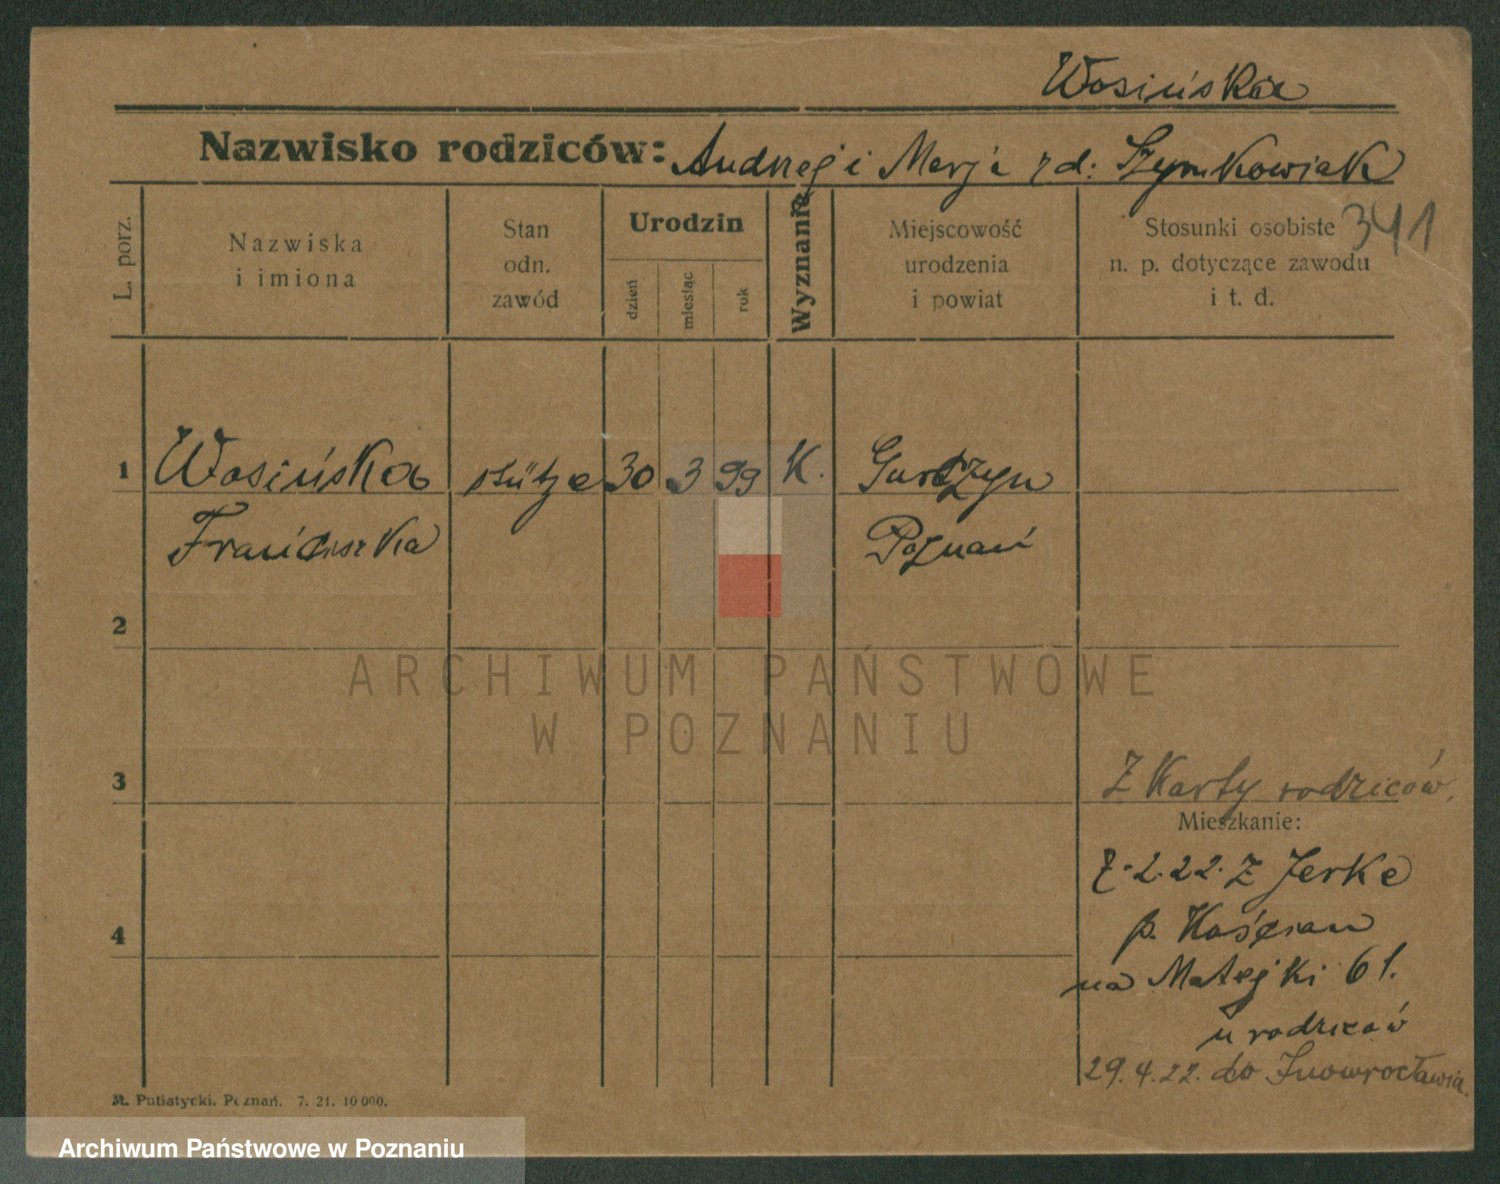 Wosińska
Nazwisko rodziców: Andrzej i Marja rd: Szymkowiak
341
L. porz.
Nazwiska
i imiona
Stan
odn.
zawód
Urodzin
dzień
miesiąc
rok
Wyznanie
Miejscowość
urodzenia
i powiat
Stosunki osobiste
n. p. dotyczące zawodu
i t. d.
1 Wosińska stütze 30 3 99 K.
Franciszka Poznań
2
3
4
Z Karty rodziców.
Mieszkanie:
7.2.22. Z Jerke
p. Kościan
na Matejki 61.
u rodziców
29.4.22. do Inowrocławia.
M. Putiatycki. Poznań. 7. 21. 10 000.
ARCHIWUM PAŃSTWOWE
W POZNANIU
Archiwum Państwowe w Poznaniu